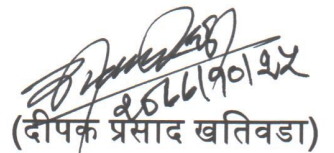 २०८८।१०।२५
(दीपक प्रसाद खतिवडा)